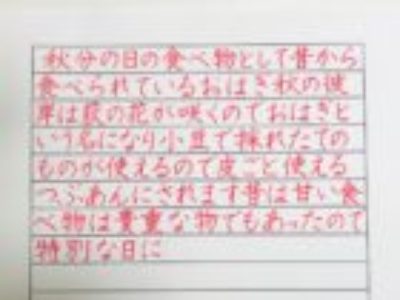 秋分の日の食べ物として昔から
食べられているおはぎ秋の彼
岸は萩の花が咲くのでおはぎと
いう名になり小豆で採れたての
ものが使えるので皮ごと使える
つぶあんにされます昔は甘い食
べ物は貴重な物でもあったので
特別な日に